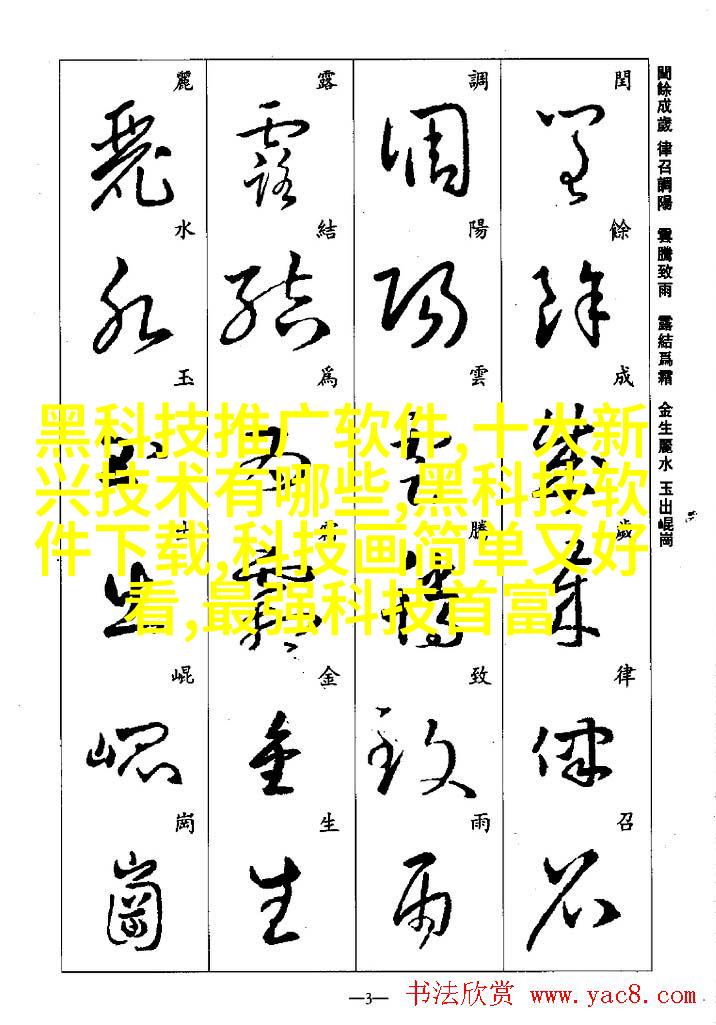 閏餘成歲 律召調陽 雲騰致雨 露結爲霜 金生麗水 玉出崐崗
閏
餘
成
歲
律
召
調
陽
雲
騰
致
雨
露
結
爲
金
生
麗
水
玉
崐
崗
黑科技推广软件,十大新
兴技术有哪些,黑科技软
件下载,科技画简单又好
看,最强科技首富
—3—
书法欣赏 www.yac8.com